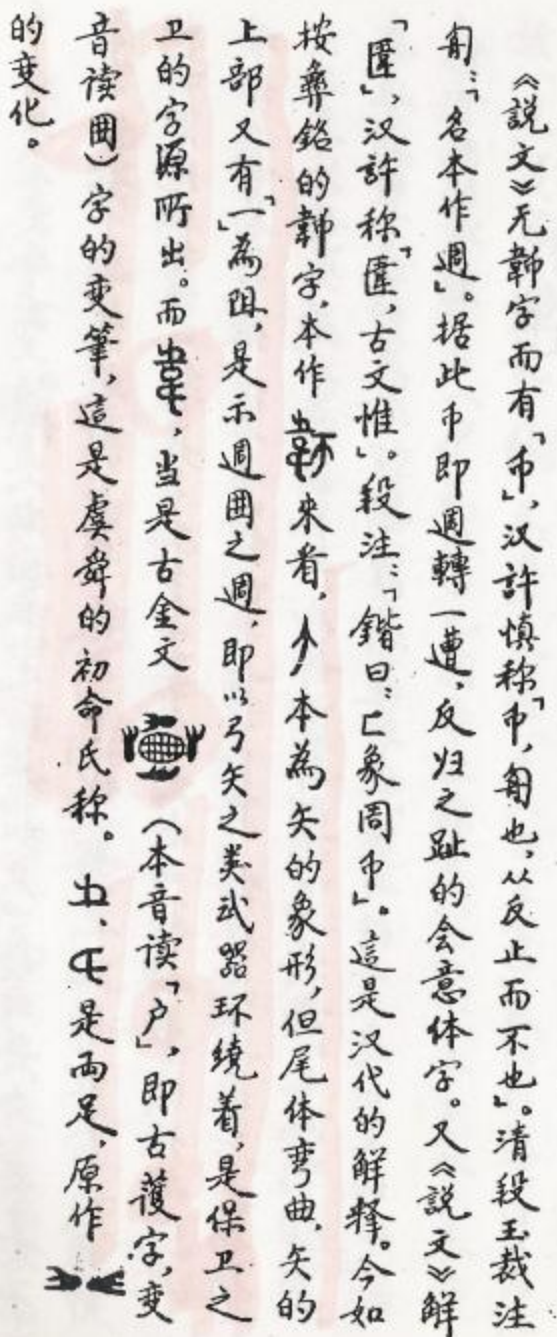 《説文》无韠字而有「帀」，汉許慎称「帀，匊也，从反止而不也」。清段玉裁注
匊：「名本作週」。据此帀即週轉一遭，反归之趾的会意体字。又《説文》解
「匯」，汉許称「匯，古文惟」。段注：「鍇曰：匚象周帀」。這是汉代的解释。今如
按彝銘的字，本作來看，本為矢的象形，但尾体弯曲，矢的
上部又有「一」為阻，是示週囲之週，即以弓矢之类武器环绕着，是保卫之
卫的字源所出。而，当是古金文（本音读「户」，即古護字，变
音读囲）字的变筆，這是虞舜的初命氏称。是両足，原作
的变化。